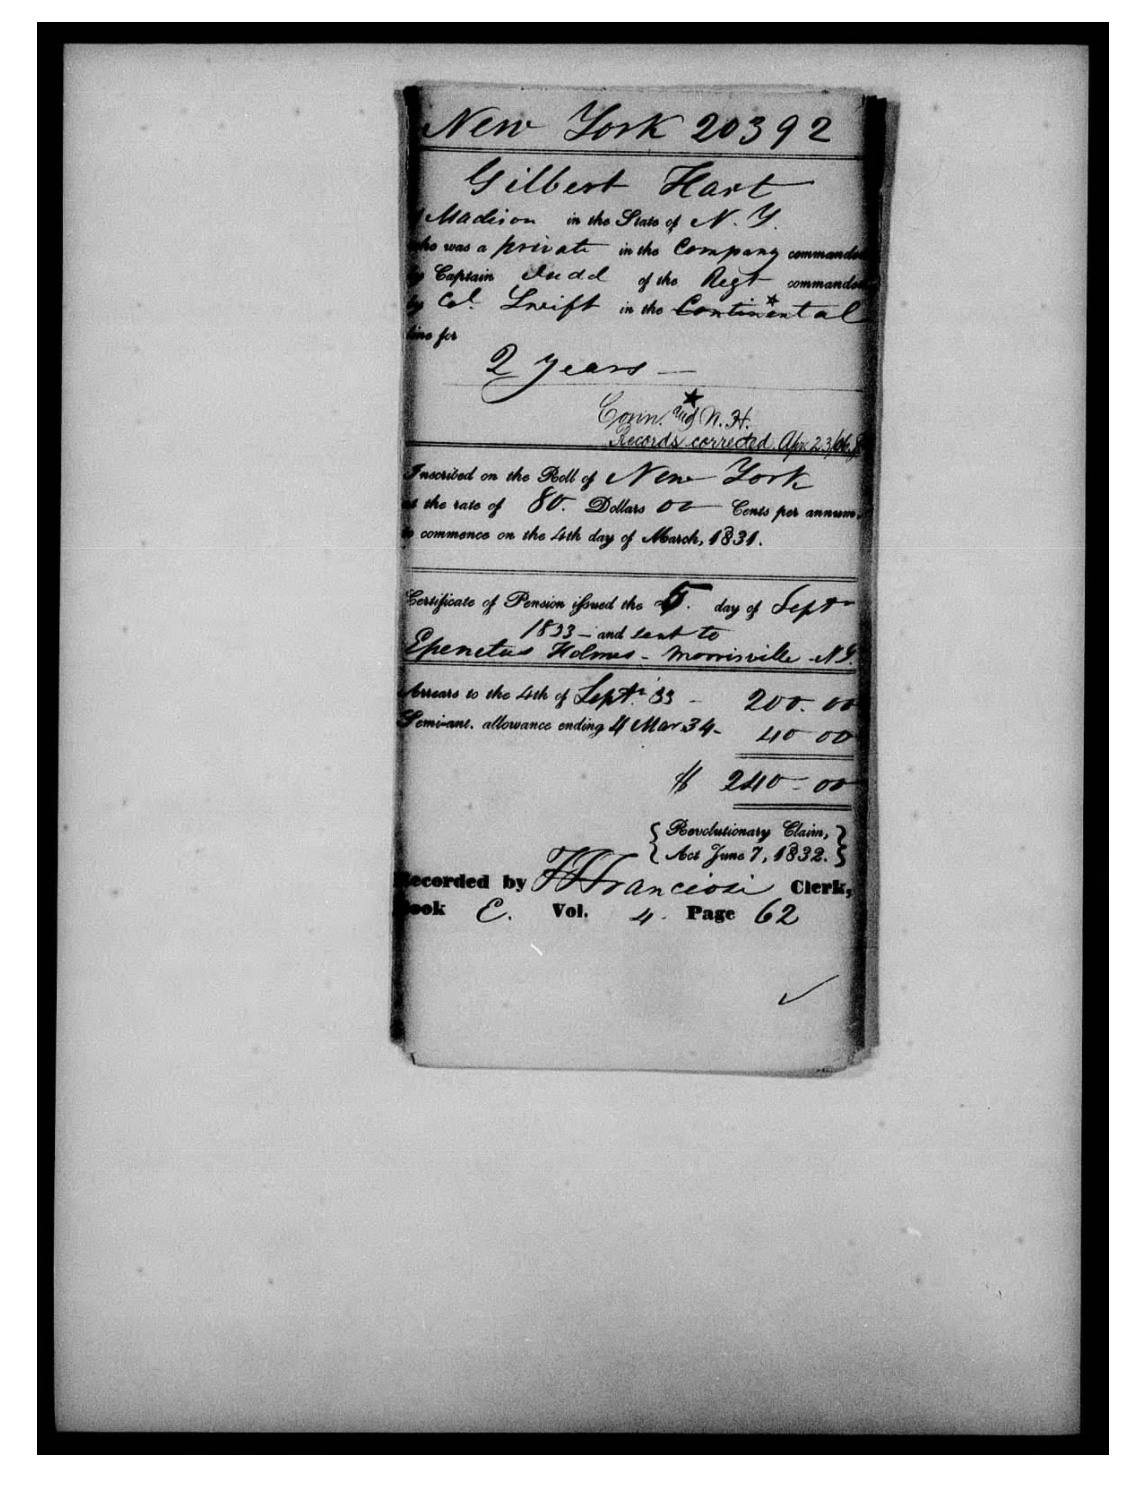 New York 20392
Gilbert Hart
of Madison in the State of N. Y.
who was a private in the Company commanded
by Captain Judd of the Regt commanded
by Col. Swift in the Continental
line for
2 years
Conn. and N. H.
Records corrected Apr. 23/06.
Inscribed on the Roll of New York
at the rate of 80. Dollars 00 Cents per annum,
to commence on the 4th day of March, 1831.
Certificate of Pension issued the 5. day of Septr
1833 - and sent to
Epenetus Holmes - Morrisville N.Y.
Arrears to the 4th of Septr. 33 - 200.00
Semi-anl. allowance ending 4 Mar 34- 40 00
$ 240-00
{ Revolutionary Claim, }
{ Act June 7, 1832. }
Recorded by Franciosi Clerk,
Book E. Vol. 4. Page 62